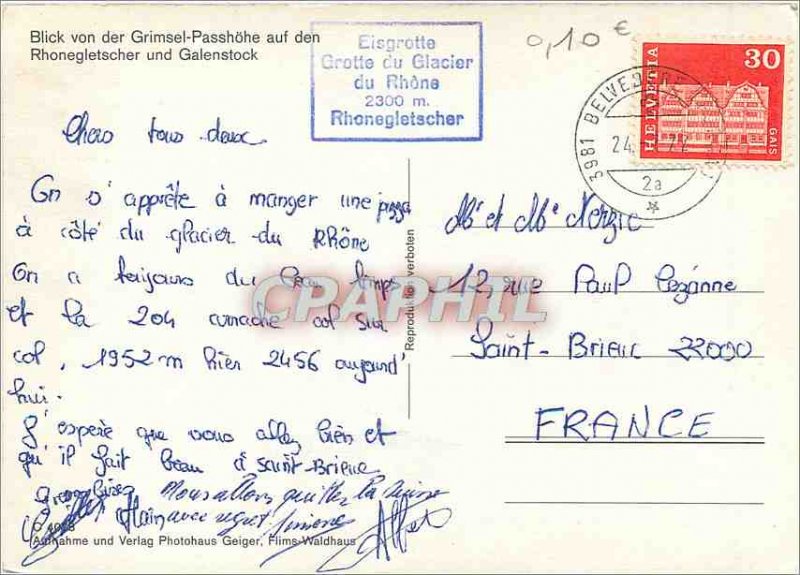 Blick von der Grimsel-Passhöhe auf den
Rhonegletscher und Galenstock
Eisgrotte
Grotte du Glacier
du Rhône
2300 m.
Rhonegletscher
0,10 €
HELVETIA
30
GAIS
3981 BELVED
24.
2a
Chers tous deux
On s'apprête à manger une pizza
à côté du glacier du Rhône
On a toujours du beau temps
et la 204 arrache col sur
col, 1952m hier 2456 aujourd'
hui.
J'espère que vous allez bien et
qu'il fait beau à Saint-Brieuc
Grosses bises Nous allons quitter la Suisse
avec regret
Reproduktion verboten
Mr et Me Nerzic
12, rue Paul Cezanne
Saint-Brieuc 22000
FRANCE
CPAPHIL
Aufnahme und Verlag Photohaus Geiger, Flims-Waldhaus